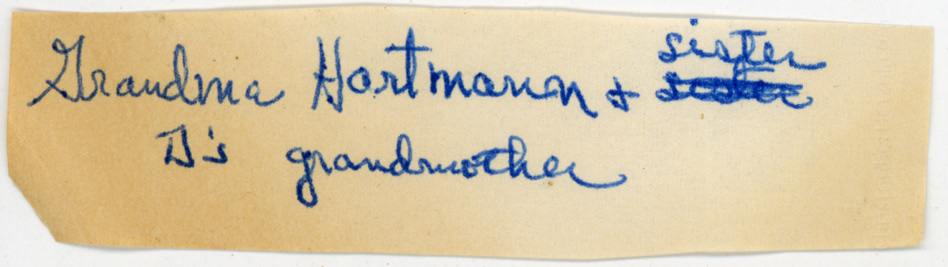 Grandma Hartmann + sister
D's grandmother